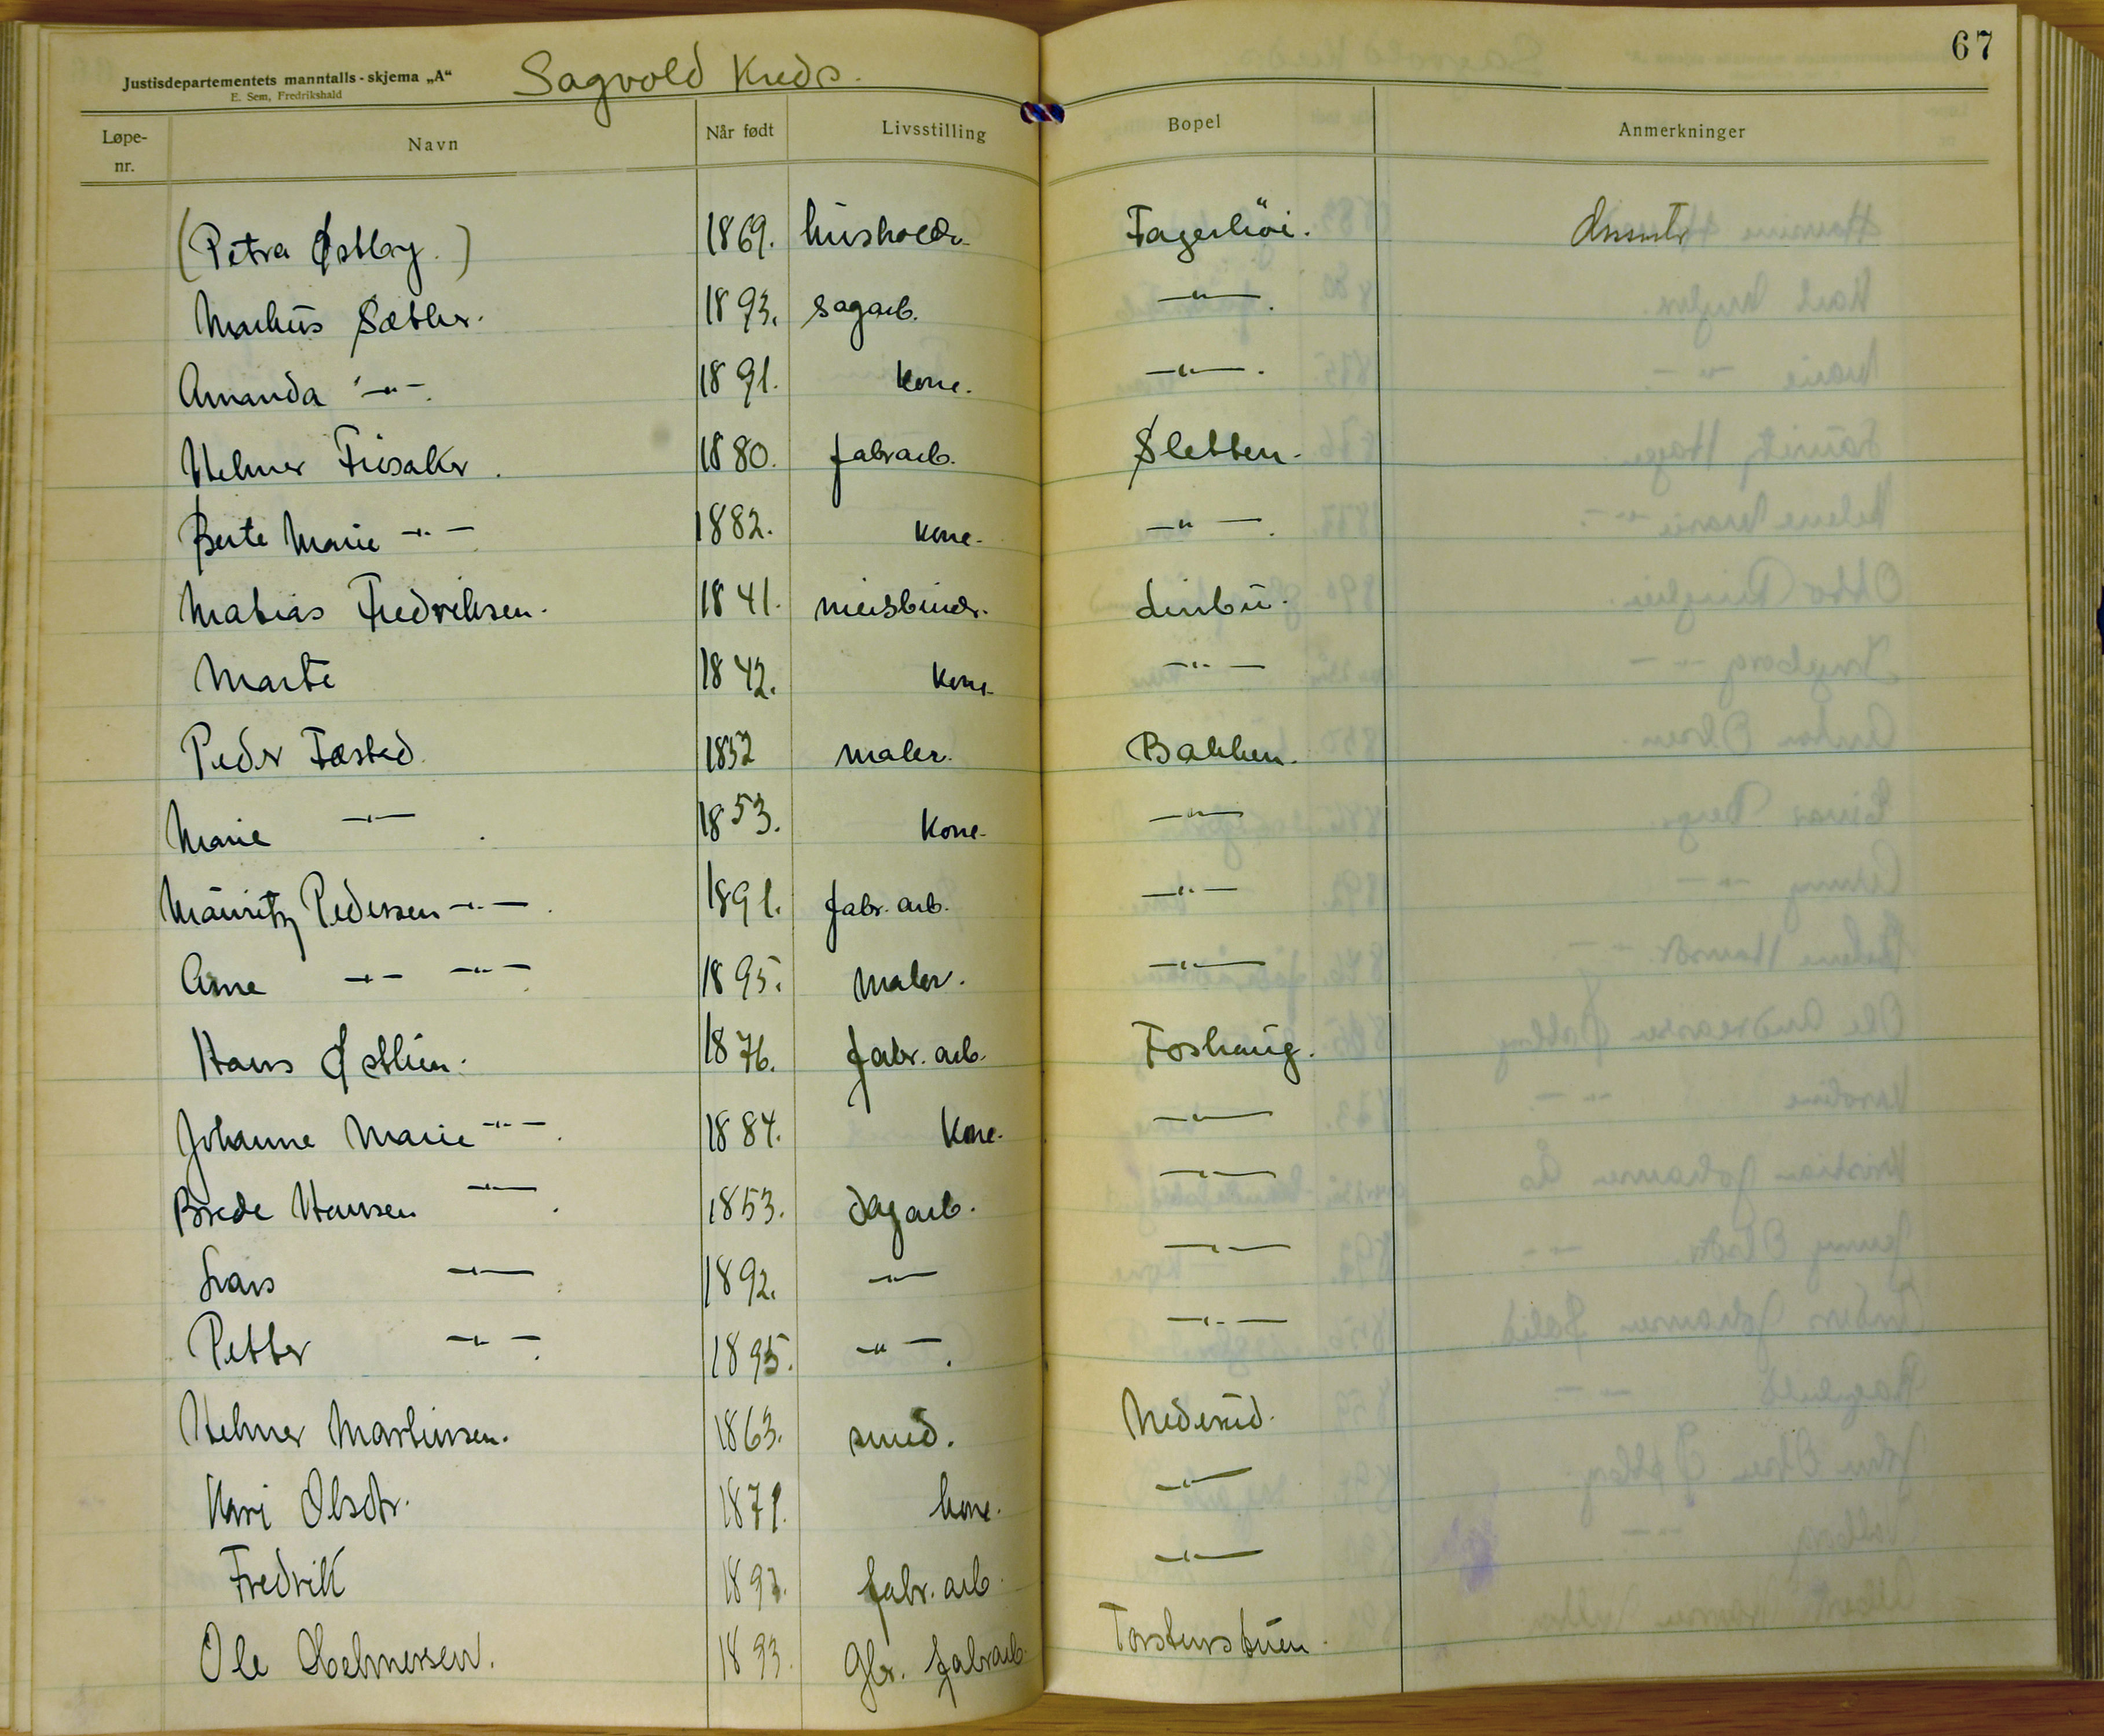 67
Justisdepartementets manntalls-skjema „A“ Sagvold Kreds.
E. Sem, Fredrikshald
Løpe-nr. Navn Når født Livsstilling Bopel Anmerkninger
(Petra Østby.) 1869. husholdr. Fagerhöi.
Markus Sæther. 1893. sagarb. —"—.
Amanda —"—. 1891. Kone. —"—.
Helmer Fiusaker. 1880. fabrarb. Sletten.
Berte Marie —"— 1882. Kone. —"—.
Matias Fredriksen. 1841. meisbindr. Linbu.
Marte 1842. Kone. —"—
Peder Fæsted. 1852 maler. Bakken.
Marie —"—. 1853. Kone. —"—
Mauritz Pedersen —"—. 1891. fabr. arb. —"—
Arne —"— —"—. 1895. Maler. —"—
Hans Østlien. 1876. fabr. arb. Foshaug.
Johanne Marie —"—. 1884. Kone. —"—
Brede Hansen —"—. 1853. dagarb. —"—
Lars —"—. 1892. —"— —"—
Petter —"—. 1895. —"—. —"—
Helmer Martinsen. 1863. smed. Nederud.
Kari Olsdtr. 1871. kone. —"—
Fredrik fabr. arb. —"—
Ole Helmersen. 1893. Gbr. fabrarb. Torstenstuen.